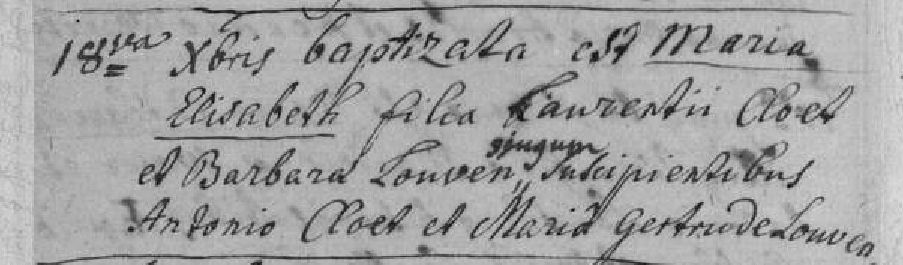 18va Xbris baptizata est Maria
Elisabeth filia Laurentii Cloet
et Barbara Louven conjugum Suscipientibus
Antonio Cloet et Maria Gertrude Louven